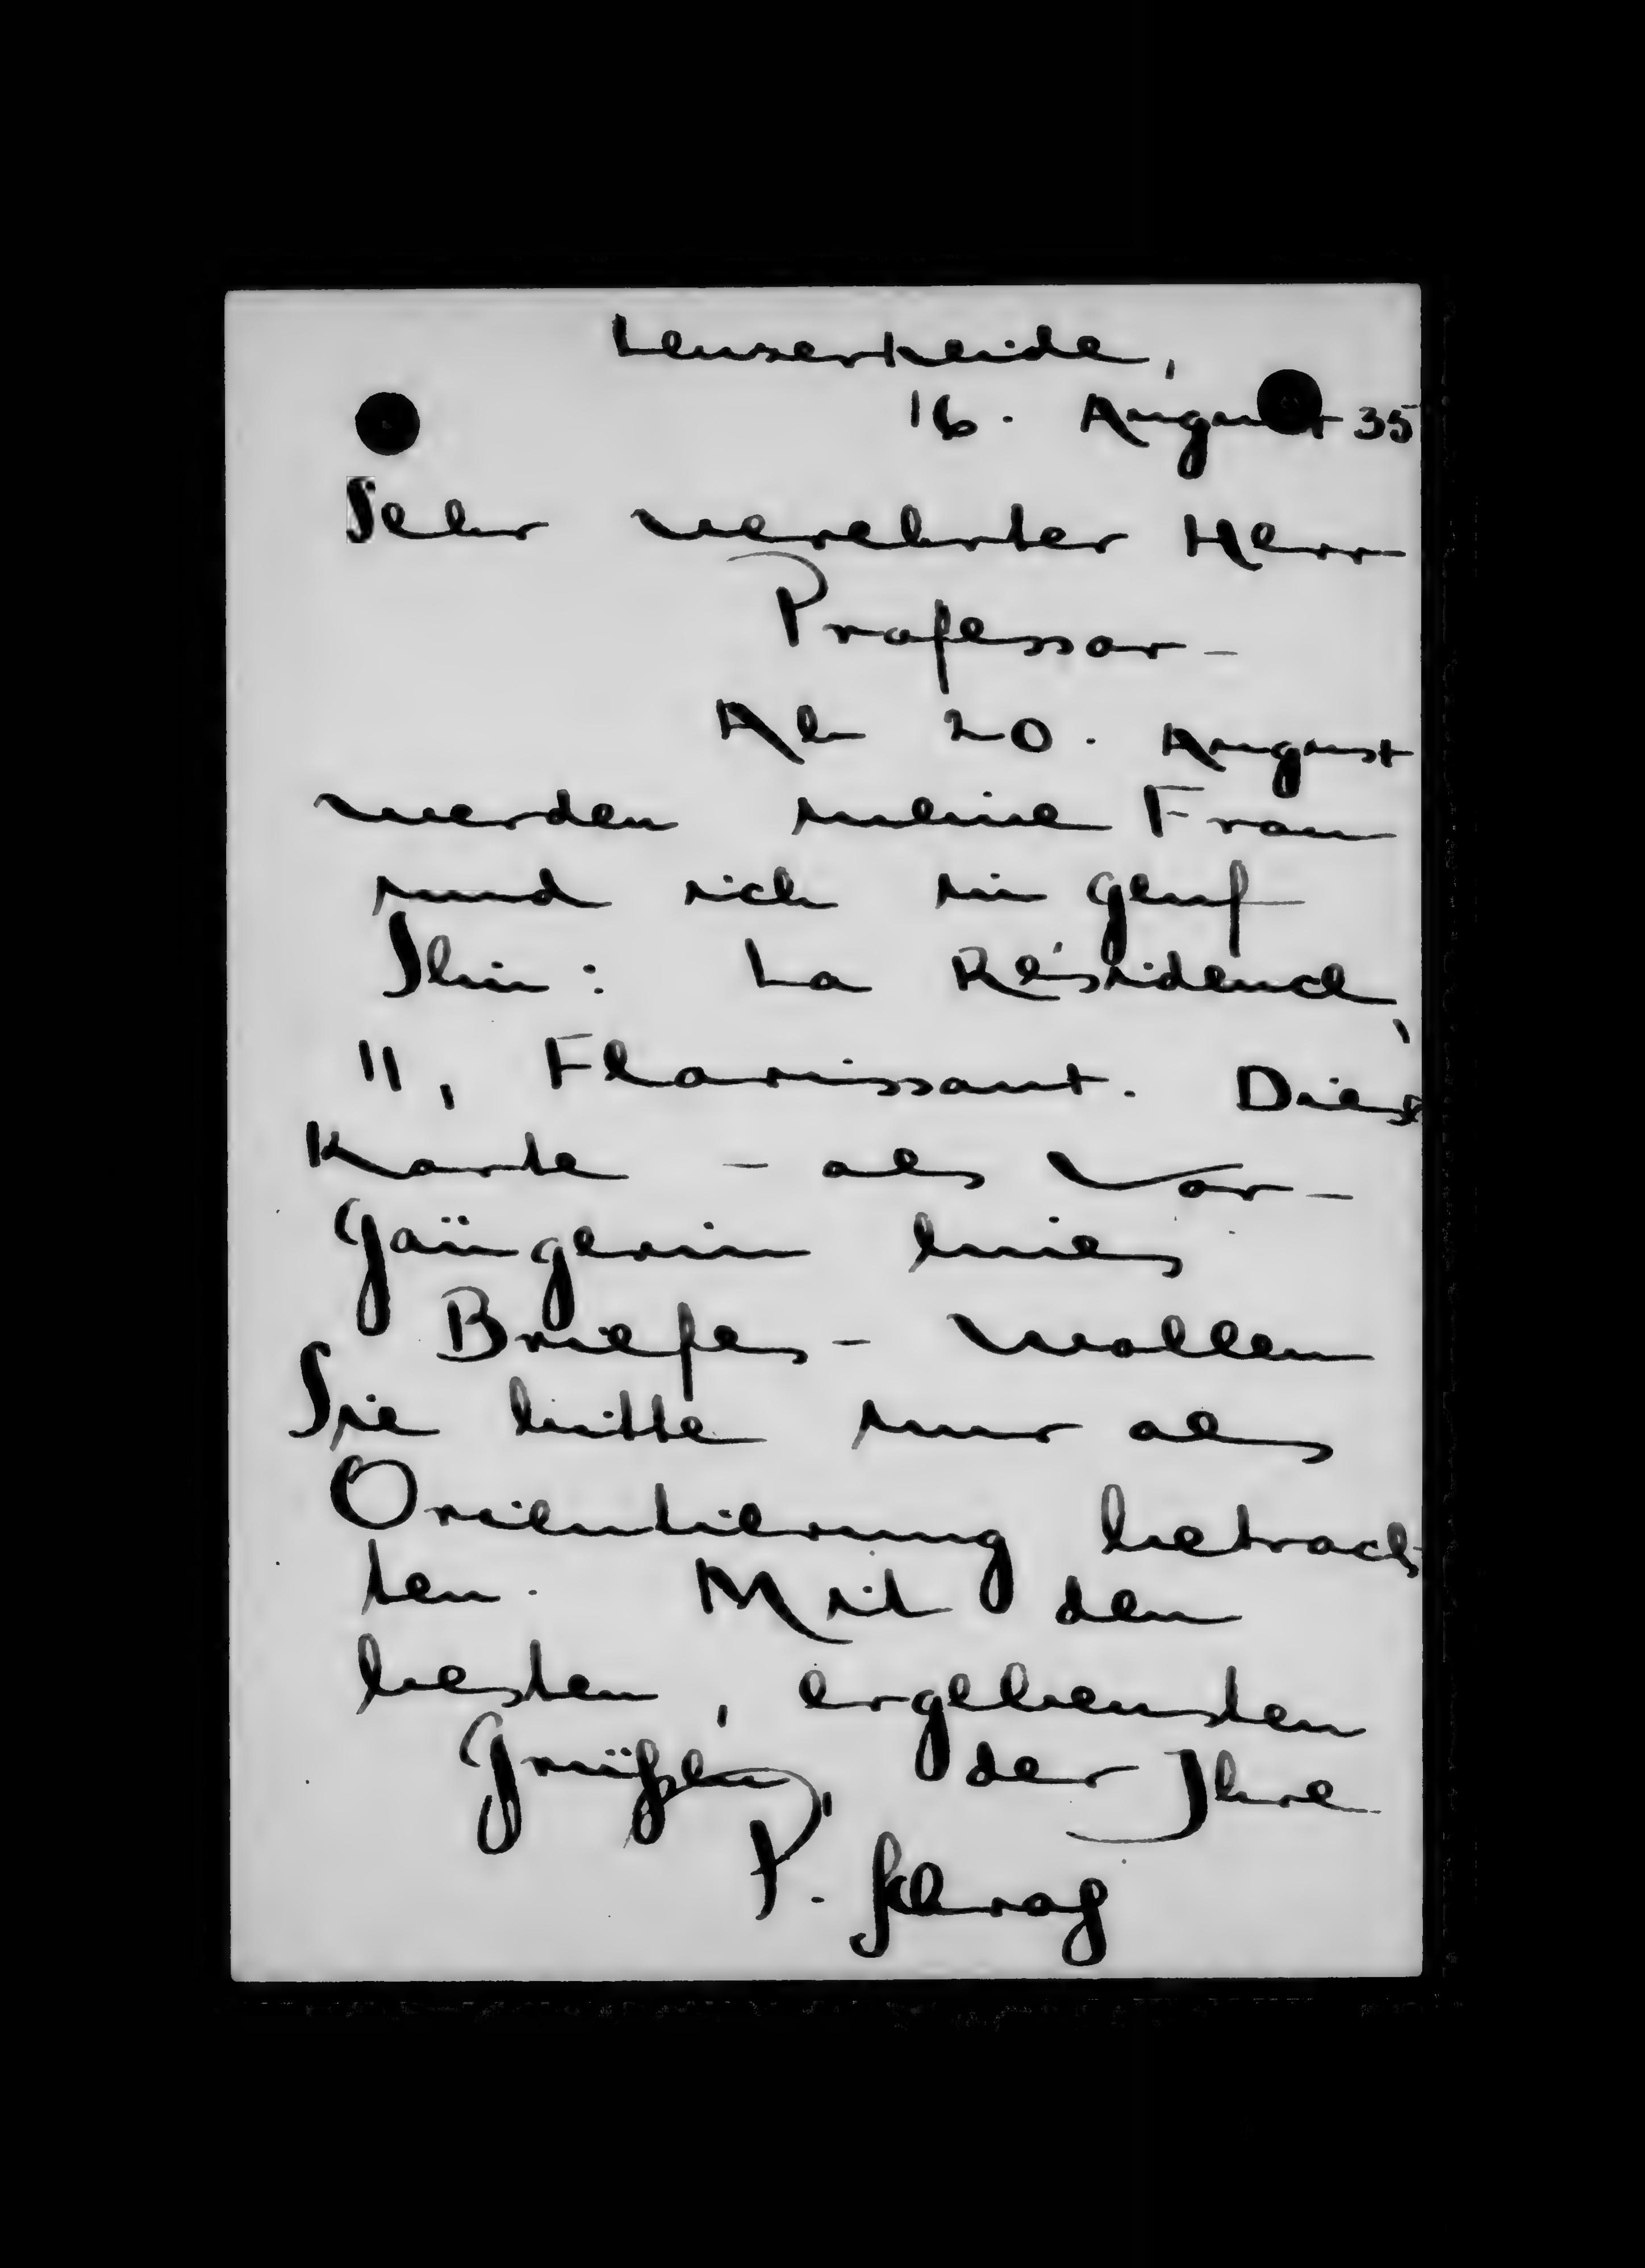 Lenzerheide,
16. August 35
Sehr verehrter Herr
Professor –
Ab 20. August
werden meine Frau
und ich in Genf
sein: La Résidence,
11, Florissant. Diese
Karte – als Vor-
gängerin eines
Briefes – wollen
Sie bitte nur als
Orientierung betrach-
ten. Mit den
besten, ergebensten
Grüßen, der Ihre
P. Schrag